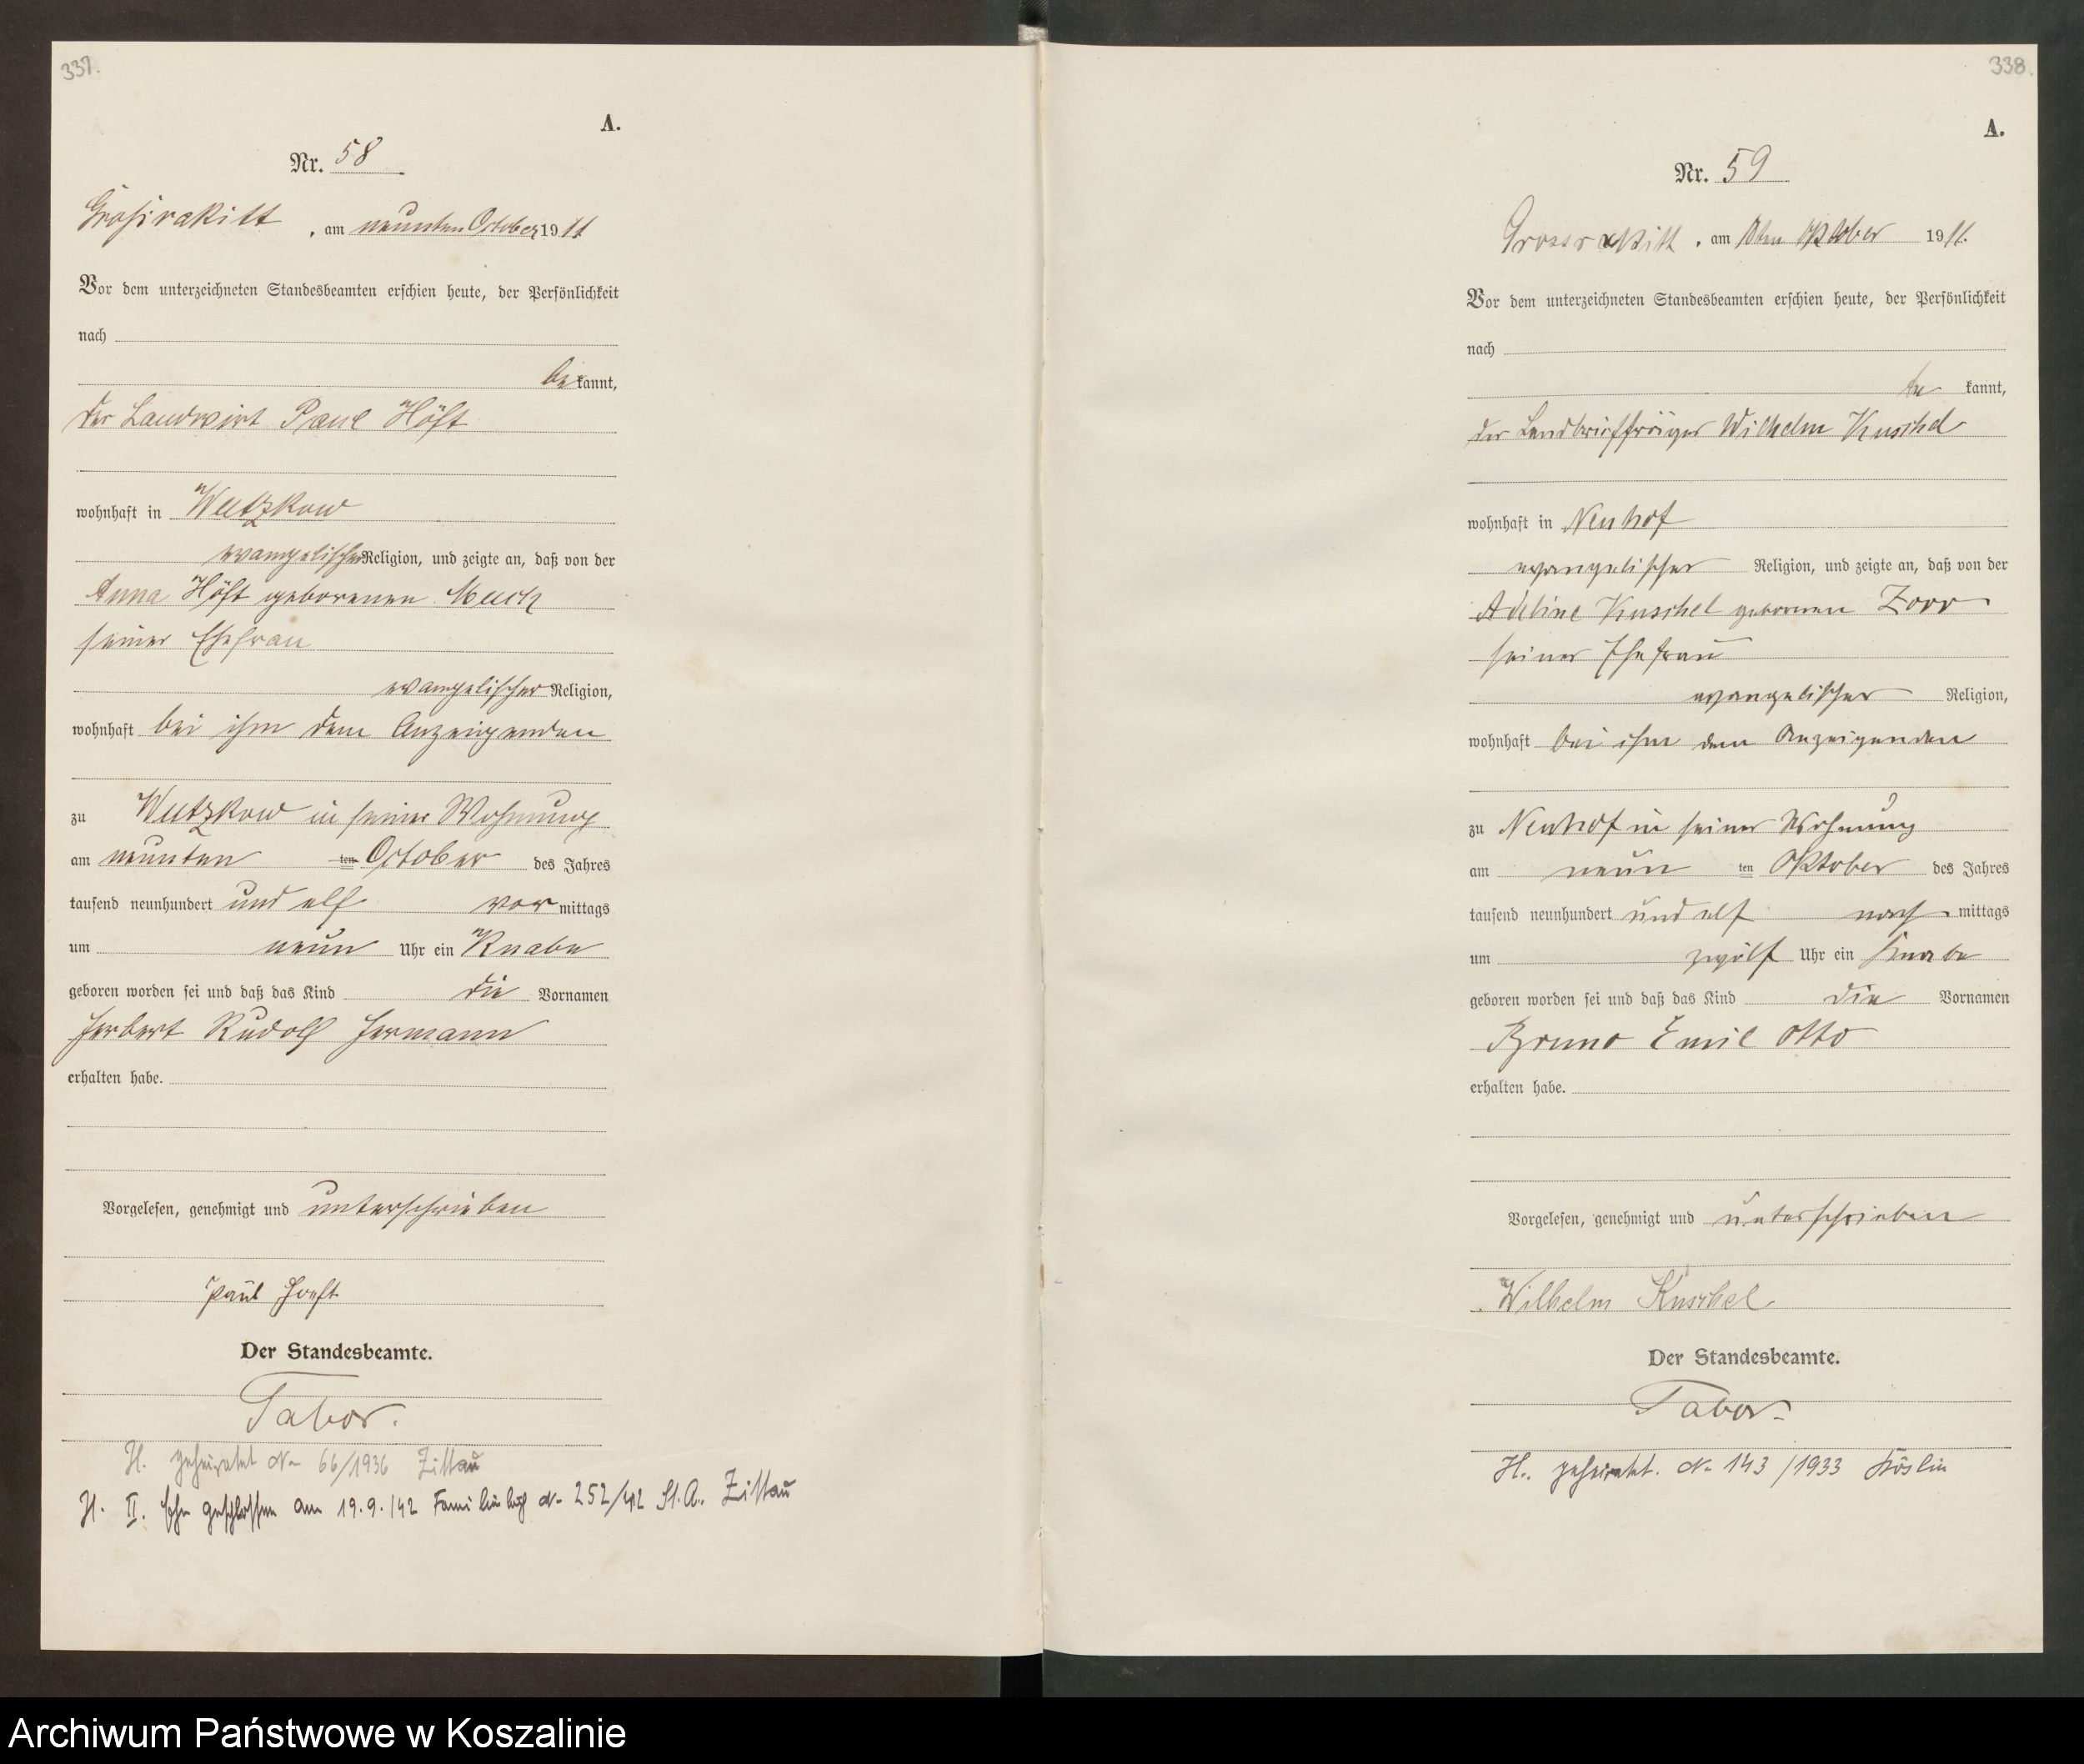 337.
A.
Nr. 58
Großrakitt, am neunten October 1911
Vor dem unterzeichneten Standesbeamten erschien heute, der Persönlichkeit
nach
bekannt,
der Landwirt Paul Höft
wohnhaft in Wutzkow
evangelischer Religion, und zeigte an, daß von der
Anna Höft geborenen
seiner Ehefrau
evangelischer Religion,
wohnhaft bei ihm dem Anzeigenden
zu Wutzkow in seiner Wohnung
am neunten ten October des Jahres
tausend neunhundert und elf vor mittags
um neun Uhr ein Knabe
geboren worden sei und daß das Kind die Vornamen
Herbert Rudolf Hermann
erhalten habe.
Vorgelesen, genehmigt und unterschrieben
Paul Hoeft
Der Standesbeamte.
Tabor.
H. geheiratet No 66/1936 Zittau
H. II. Ehe geschlossen am 19.9./42 No 252/42 St.A. Zittau
338.
A.
Nr. 59
Grossrakitt, am 10ten Oktober 1911.
Vor dem unterzeichneten Standesbeamten erschien heute, der Persönlichkeit
nach
be kannt,
der Landbriefträger Wilhelm Kuschel
wohnhaft in Neuhof
evangelischer Religion, und zeigte an, daß von der
Adeline Kuschel geborenen Zorr
seiner Ehefrau
evangelischer Religion,
wohnhaft bei ihm dem Anzeigenden
zu Neuhof in seiner Wohnung
am neun ten Oktober des Jahres
tausend neunhundert und elf nach mittags
um zwölf Uhr ein Knabe
geboren worden sei und daß das Kind die Vornamen
Bruno Emil Otto
erhalten habe.
Vorgelesen, genehmigt und unterschrieben
Wilhelm Kuschel
Der Standesbeamte.
Tabor.
H. geheiratet. No 143/1933 Köslin
Archiwum Państwowe w Koszalinie